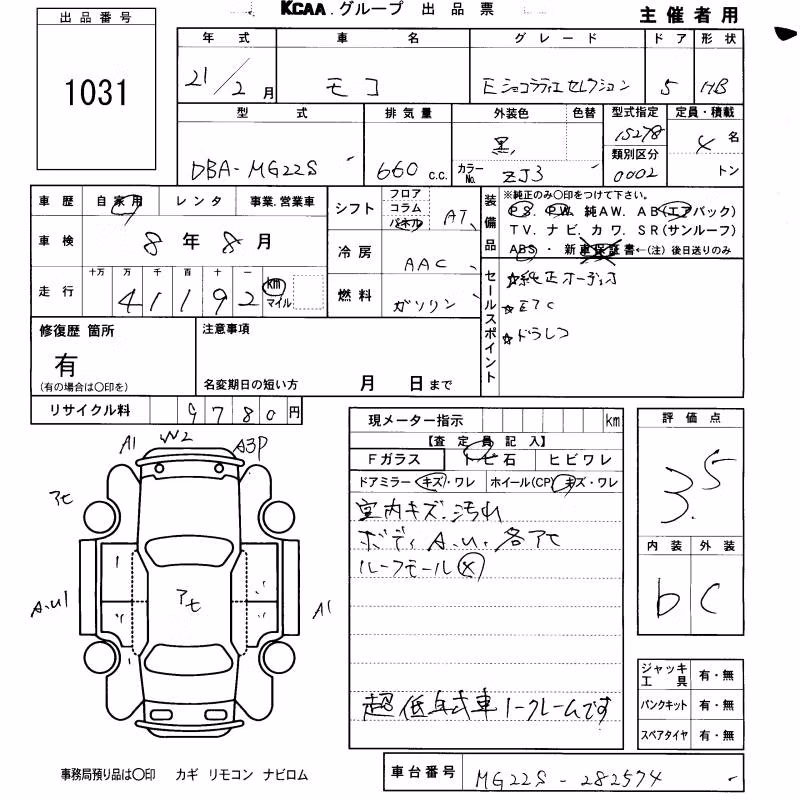 KCAA.グループ 出品票
主催者用
出品番号
1031
年式 車名 グレード ドア 形状
21/2月 モコ Eショコラティエセレクション 5 HB
型式 排気量 外装色 色替 型式指定 定員・積載
DBA-MG22S 660 c.c. 黒 15278 4名
カラーNo. ZJ3 類別区分 0002 トン
車歴 自家用 レンタ 事業.営業車
車検 8年8月
走行 十万 万 千 百 十 一
41192 km マイル
シフト フロア コラム パネル AT
冷房 AAC
燃料 ガソリン
装備品 ※純正のみ〇印をつけて下さい。
PS. PW. 純AW. AB(エアバック)
TV. ナビ. カワ. SR(サンルーフ)
ABS・新車保証書←(注)後日送りのみ
セールスポイント
☆純正オーディオ
☆ETC
☆ドラレコ
修復歴 箇所
有
(有の場合は〇印を)
注意事項
名変期日の短い方 月 日まで
リサイクル料 9780円
現メーター指示 km
【査定員記入】
Fガラス トビ石 ヒビワレ
ドアミラー(キズ・ワレ ホイール(CP) キズ・ワレ
室内キズ.汚れ
ボディ A.U.各アセ
ルーフモール(X)
超低年式車ノークレームです
評価点
3.5
内装 外装
b C
ジャッキ工具 有・無
パンクキット 有・無
スペアタイヤ 有・無
A1 W2 A3P
アセ
A.U1 アセ A1
事務局預り品は〇印 カギ リモコン ナビロム
車台番号 MG22S-282574